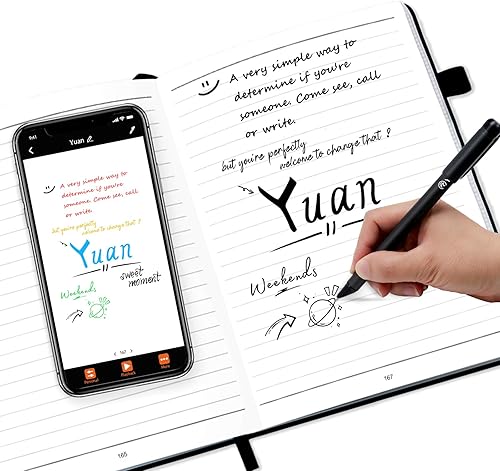 A very simple way to
determine if you're
someone. Come see, call
or write.
but you're perfectly
welcome to change that ?
Yuan
Weekends
167
165
9:41
Yuan
A very simple way to
determine if you're
someone. Come see, call
or write.
but you're perfectly
welcome to change that ?
Yuan
sweet
moment
Weekends
< 167 >
Personal
Playback
More